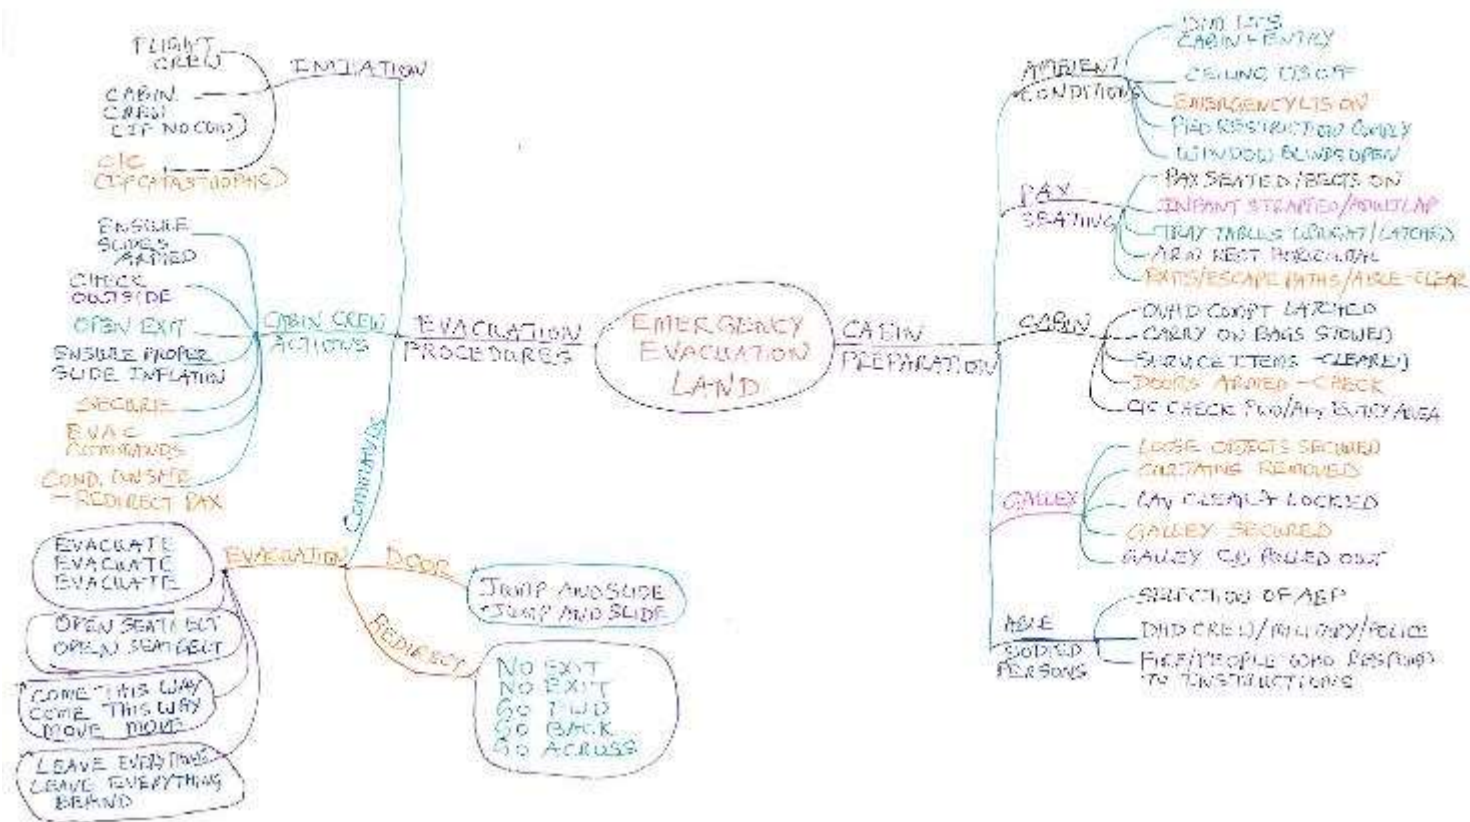 EMERGENCY
EVACUATION
LAND
EVACUATION
PROCEDURES
INITIATION
FLIGHT
CREW
CABIN
CREW
(IF NO COM)
C/C
(IF CATASTROPHIC)
CABIN CREW
ACTIONS
ENSURE
SLIDES
ARMED
CHECK
OUTSIDE
OPEN EXIT
ENSURE PROPER
SLIDE INFLATION
SECURE
EVAC
COMMANDS
COND. UNSAFE
- REDIRECT PAX
COMMANDS
EVACUATION
EVACUATE
EVACUATE
EVACUATE
OPEN SEATBELT
OPEN SEATBELT
COME THIS WAY
COME THIS WAY
MOVE MOVE
LEAVE EVERYTHING
LEAVE EVERYTHING
BEHIND
DOOR
JUMP AND SLIDE
JUMP AND SLIDE
REDIRECT
NO EXIT
NO EXIT
GO FWD
GO BACK
GO ACROSS
CABIN
PREPARATION
AMBIENT
CONDITIONS
DIM LTS
CABIN + ENTRY
CEILING LTS OFF
EMERGENCY LTS ON
PED RESTRICTION COMPLY
WINDOW BLINDS OPEN
PAX
SEATING
PAX SEATED/BELTS ON
INFANT STRAPPED/ADULT LAP
TRAY TABLES UPRIGHT/LATCHED
ARM REST HORIZONTAL
EXITS/ESCAPE PATHS/AISLE-CLEAR
CABIN
OVHD COMPT LATCHED
CARRY ON BAGS STOWED
SERVICE ITEMS -CLEARED
DOORS ARMED - CHECK
C/C CHECK FWD/AFT ENTRY AREA
GALLEY
LOOSE OBJECTS SECURED
CURTAINS REMOVED
LAV CLEAR & LOCKED
GALLEY SECURED
GALLEY CB PULLED OUT
ABLE
BODIED
PERSONS
SELECTION OF ABP
DHD CREW/MILITARY/POLICE
FIRE/PEOPLE WHO RESPOND
TO INSTRUCTIONS